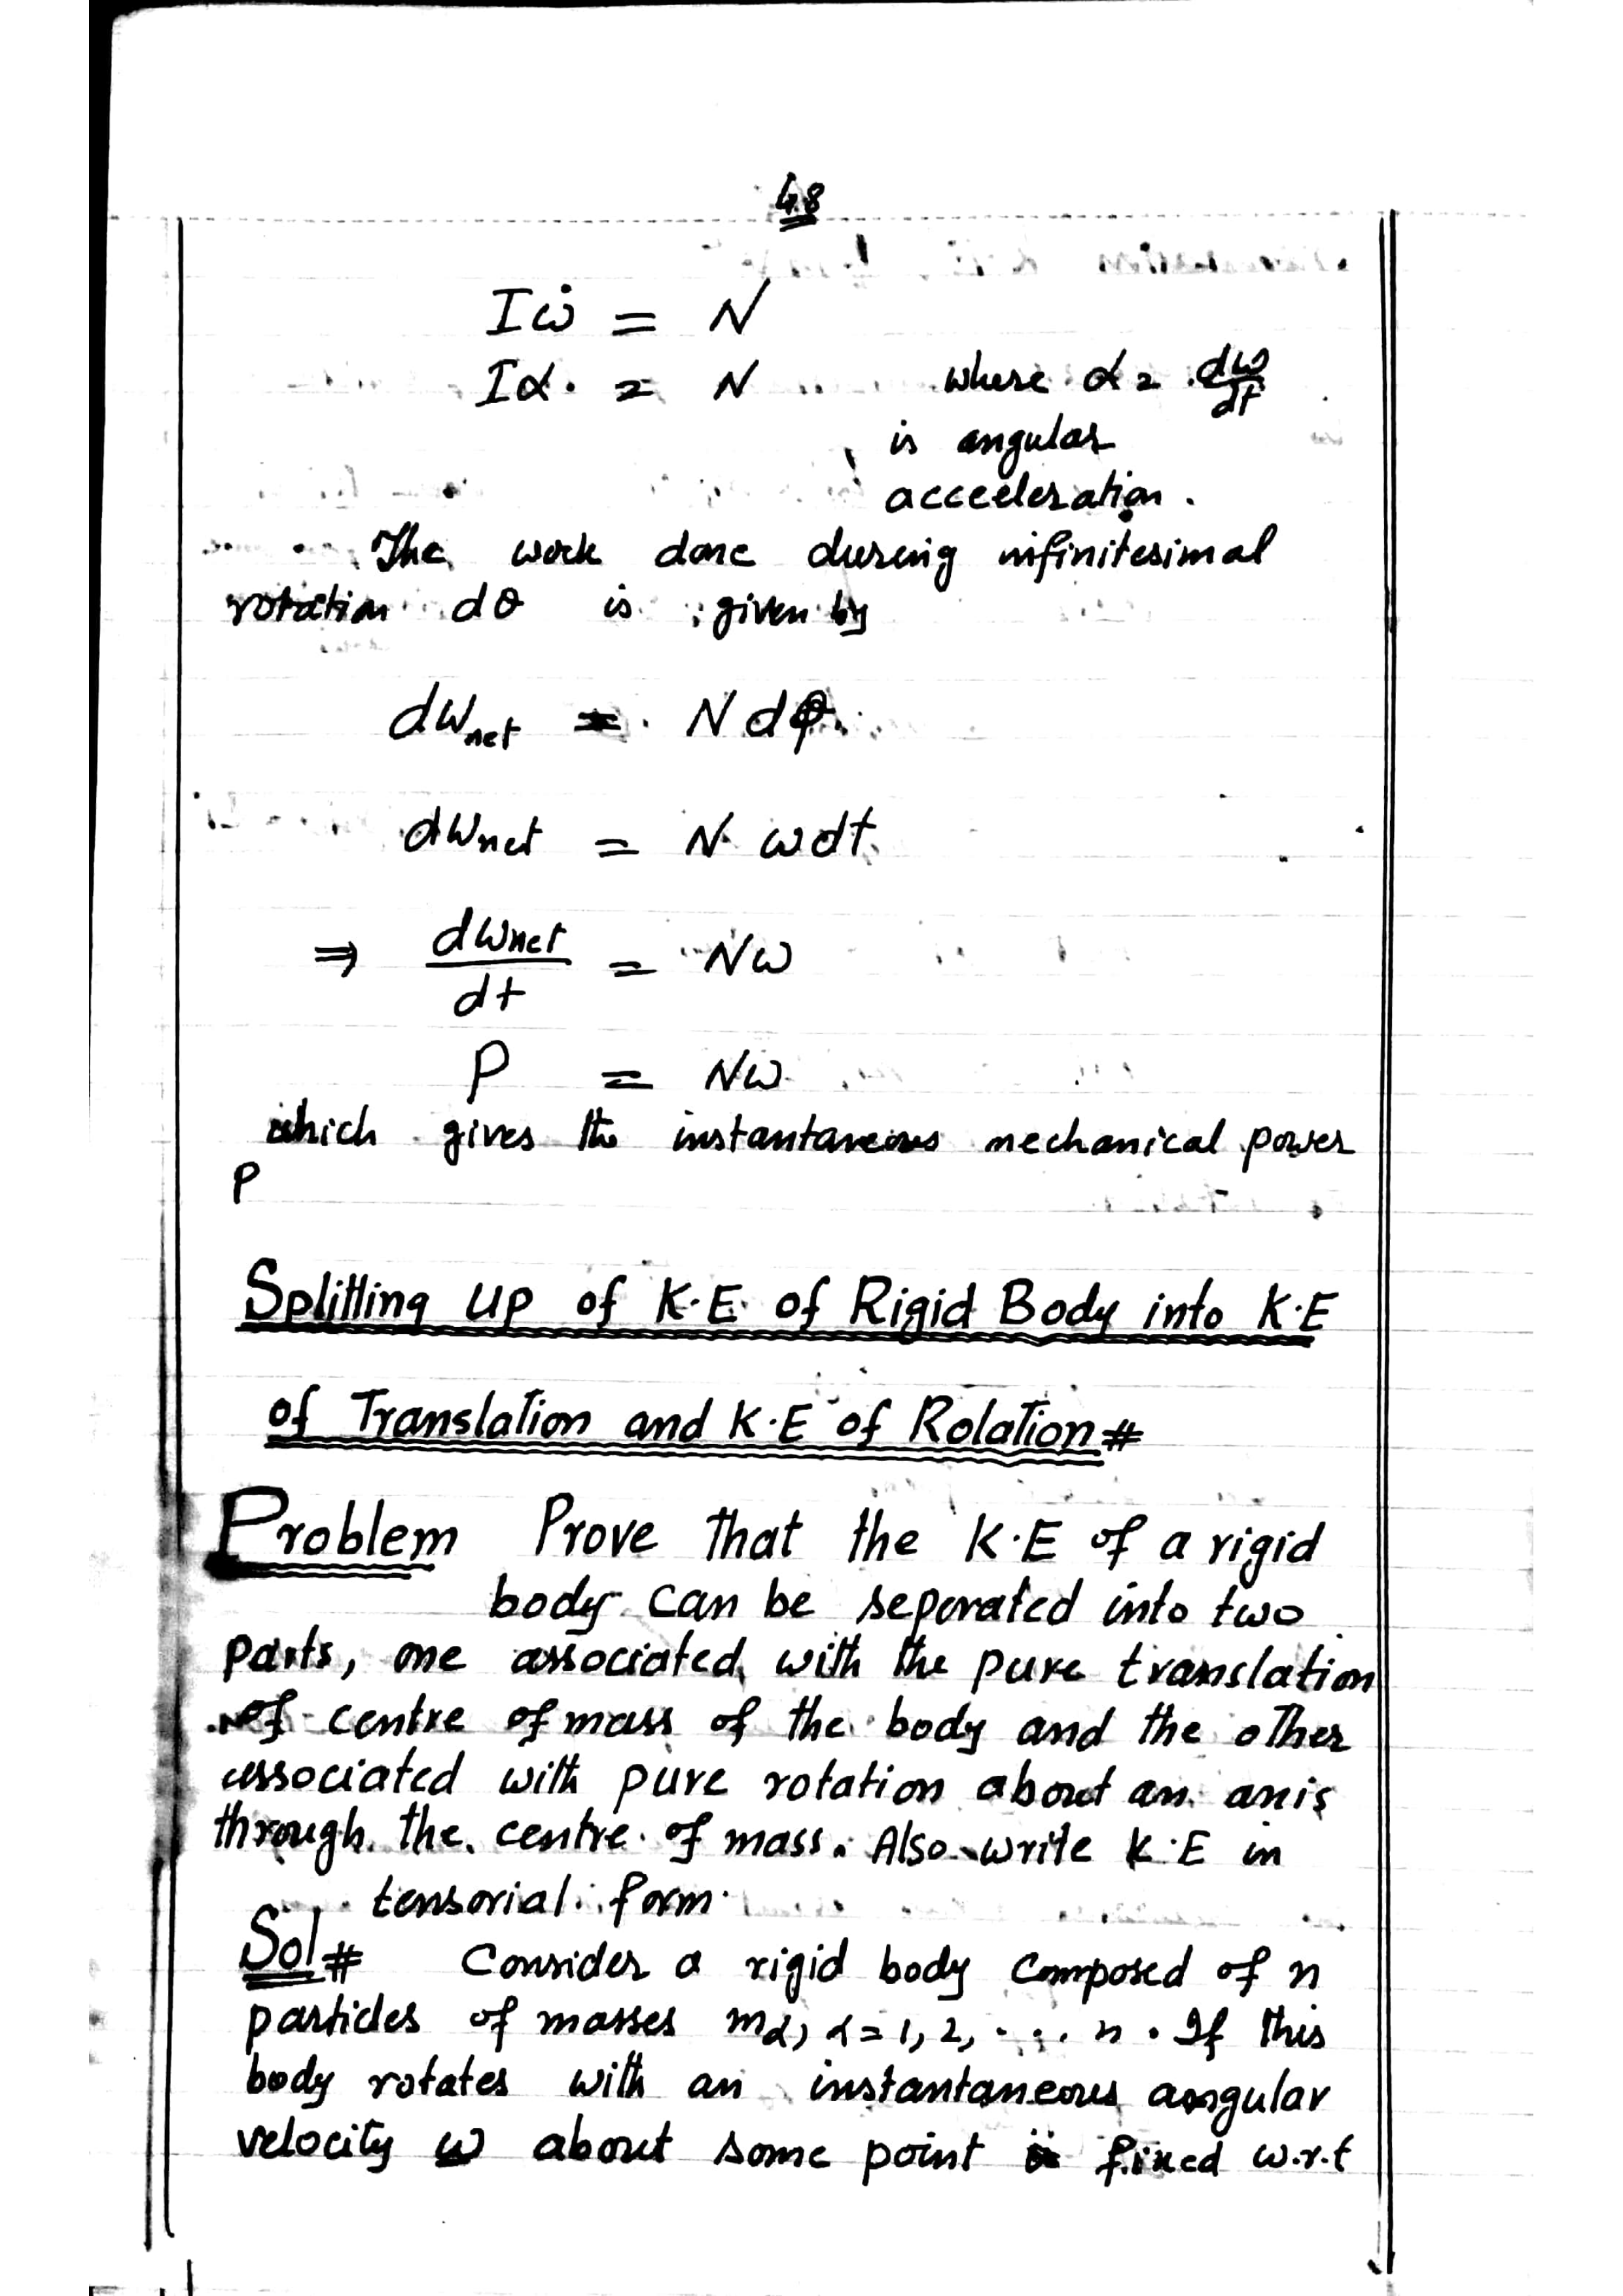 48
Iω̇ = N
Iα. = N where α = dω/dt
is angular
acceeleration.
The work done during infinitesimal
rotation dθ is given by
dWnet = N dθ.
dWnet = N ωdt
⇒ dWnet/dt = Nω
P = Nω
which gives the instantaneous mechanical power
P
Splitting up of K.E. of Rigid Body into K.E
of Translation and K.E of Rotation #
Problem Prove that the K.E of a rigid
body can be seperated into two
parts, one associated with the pure translation
of centre of mass of the body and the other
associated with pure rotation about an axis
through the centre of mass. Also write K.E in
tensorial form.
Sol # Consider a rigid body composed of n
particles of masses mα, α = 1, 2, .... n. If this
body rotates with an instantaneous angular
velocity ω about some point fixed w.r.t